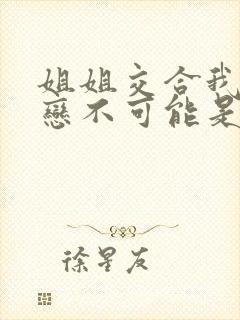 姐姐交合我
戀不可能是
徐星友